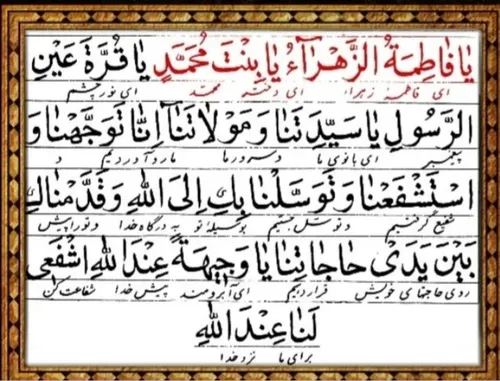 يٰا فٰاطِمَةُ الزَّهْرٰاءُ يٰا بِنْتَ مُحَمَّدٍ يٰا قُرَّةَ عَيْنِ
ای فاطمهٔ زهرا ای دختر محمد ای نور چشم
الرَّسُولِ يٰا سَيِّدَتَنٰا وَ مَوْلاتَنٰا اِنّٰا تَوَجَّهْنٰا وَ
پیغمبر ای بانوی ما و سرور ما ما رو آوردیم و
اسْتَشْفَعْنٰا وَ تَوَسَّلْنٰا بِكِ اِلَى اللهِ وَ قَدَّمْنٰاكِ
شفیع گرفتیم و توسل جستیم بوسیله تو به درگاه خدا و تو را پیش
بَيْنَ يَدَىْ حٰاجٰاتِنٰا يٰا وَجِيهَةً عِنْدَ اللهِ اشْفَعى
روی حاجتهای خویش قرار دادیم ای آبرومند پیش خدا شفاعت کن
لَنٰا عِنْدَ اللهِ
برای ما نزد خدا